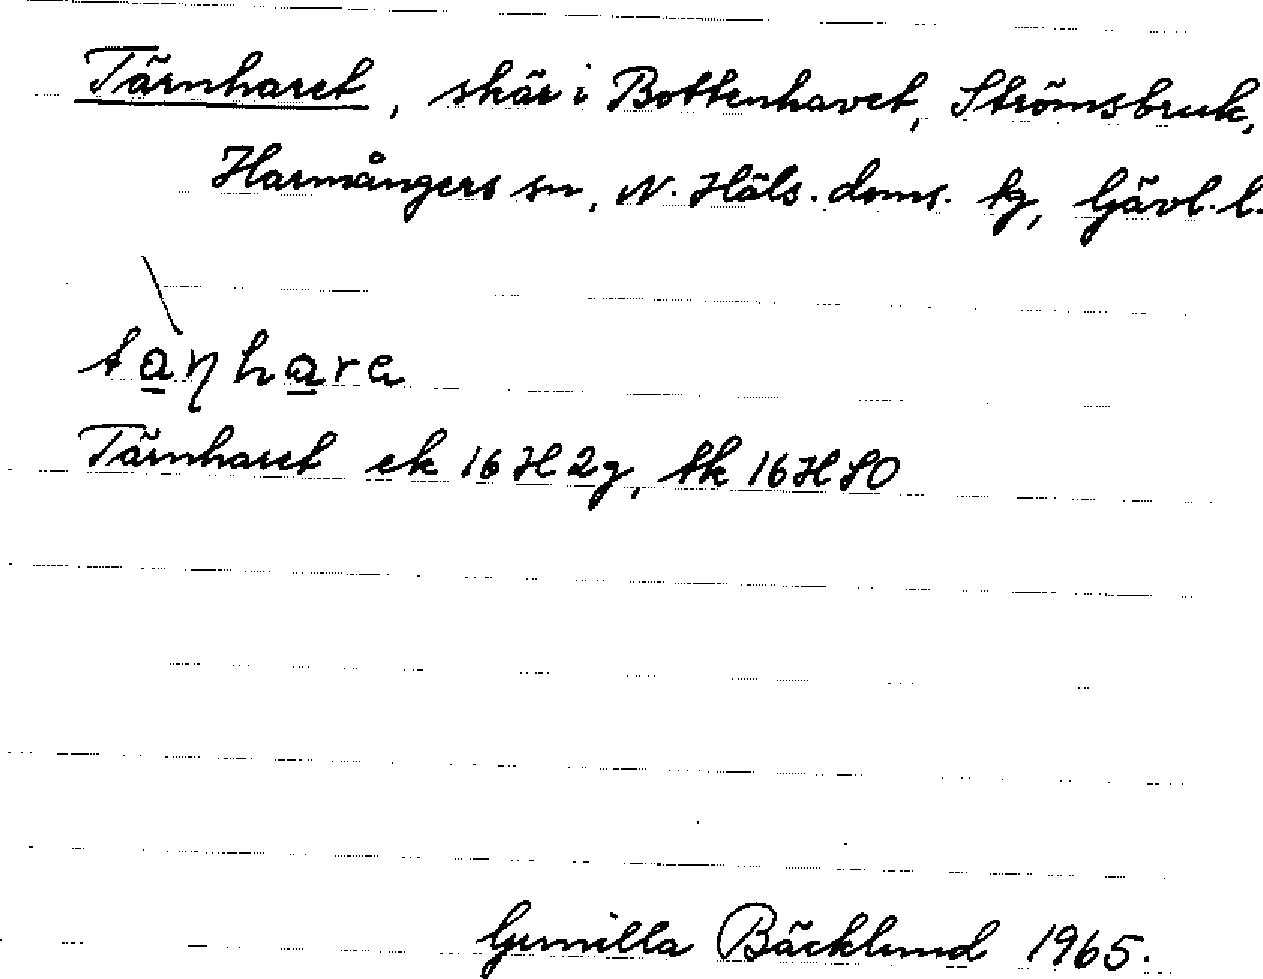 Tärnharet, skär i Bottenhavet, Strömsbruk,
Harmångers sn, N. Häls. doms. tg, Gävl. l.
tàṇhara
Tärnharet ek 16 H 2g, tk 16H SO
Gunilla Bäcklund 1965.